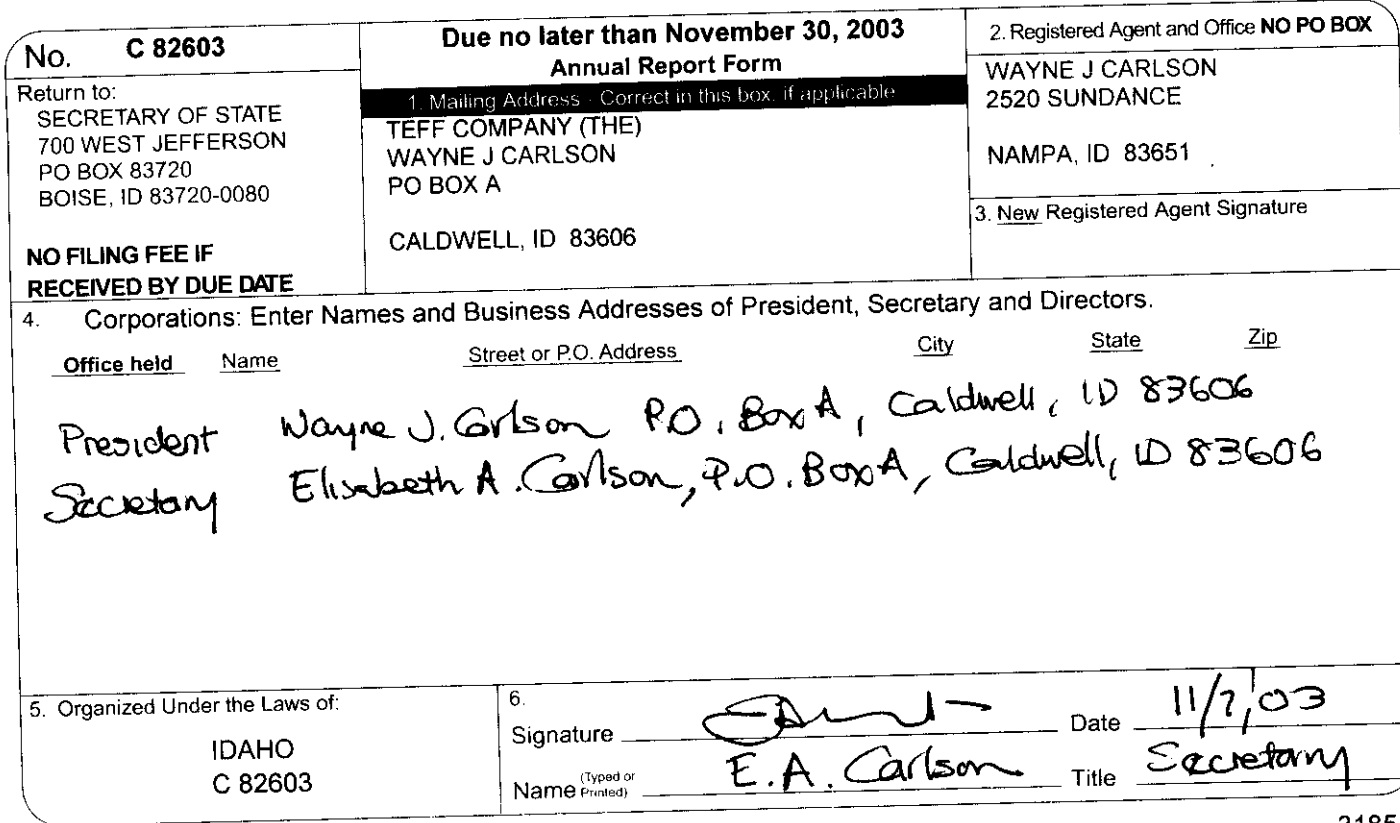 No. C 82603
Return to:
SECRETARY OF STATE
700 WEST JEFFERSON
PO BOX 83720
BOISE, ID 83720-0080
NO FILING FEE IF
RECEIVED BY DUE DATE
Due no later than November 30, 2003
Annual Report Form
1. Mailing Address - Correct in this box, if applicable
TEFF COMPANY (THE)
WAYNE J CARLSON
PO BOX A
CALDWELL, ID 83606
2. Registered Agent and Office NO PO BOX
WAYNE J CARLSON
2520 SUNDANCE
NAMPA, ID 83651
3. New Registered Agent Signature
4. Corporations: Enter Names and Business Addresses of President, Secretary and Directors.
Office held Name Street or P.O. Address City State Zip
President Wayne J. Carlson P.O. Box A, Caldwell, ID 83606
Secretary Elisabeth A. Carlson, P.O. Box A, Caldwell, ID 83606
5. Organized Under the Laws of:
IDAHO
C 82603
6.
Signature Date 11/7/03
Name (Typed or Printed) E.A. Carlson Title Secretary